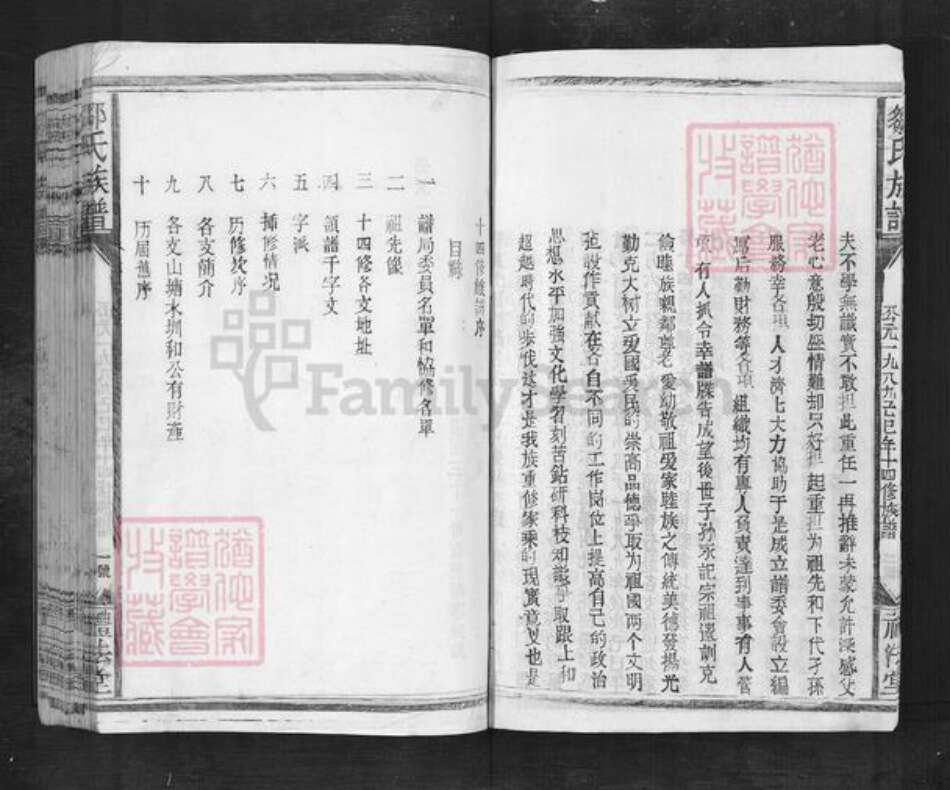 鄒氏族譜
公元一九八九己巳年十四修族譜
夫不學無識實不敢担此重任一再推辭未蒙允許深感父
老心意殷切盛情難却只好担起重担为祖先和下代子孫
服務幸各項人才濟上大力協助于是成立譜委會設立編
篤后勤財務等各項組織均有專人負責達到事事有人管
項有人抓令幸譜牒告成望後世子孫永記宗祖遺訓克
倫睦族親鄰尊老愛幼敬祖愛家睦族之傳統美德發揚光
勤克大树立愛國愛民的崇高品德爭取为祖國两个文明
建設作貢献在各自不同的工作崗位上提高自己的政治
思想水平加強文化學習刻苦鈷研科技知識爭取跟上和
超越時代的步伐这才是我族重修家乘的現實意义也是
十四修族譜序
目錄
一 譜局委員名單和協修名單
二 祖先像
三 十四修各支地址
四 領譜千字文
五 字派
六 捐修情况
七 历修次序
八 各支簡介
九 各支山塘木圳和公有財產
十 历届舊序
鄒氏族譜
一號
FamilySearch
猶他家譜學會收藏
猶他家譜學會收藏